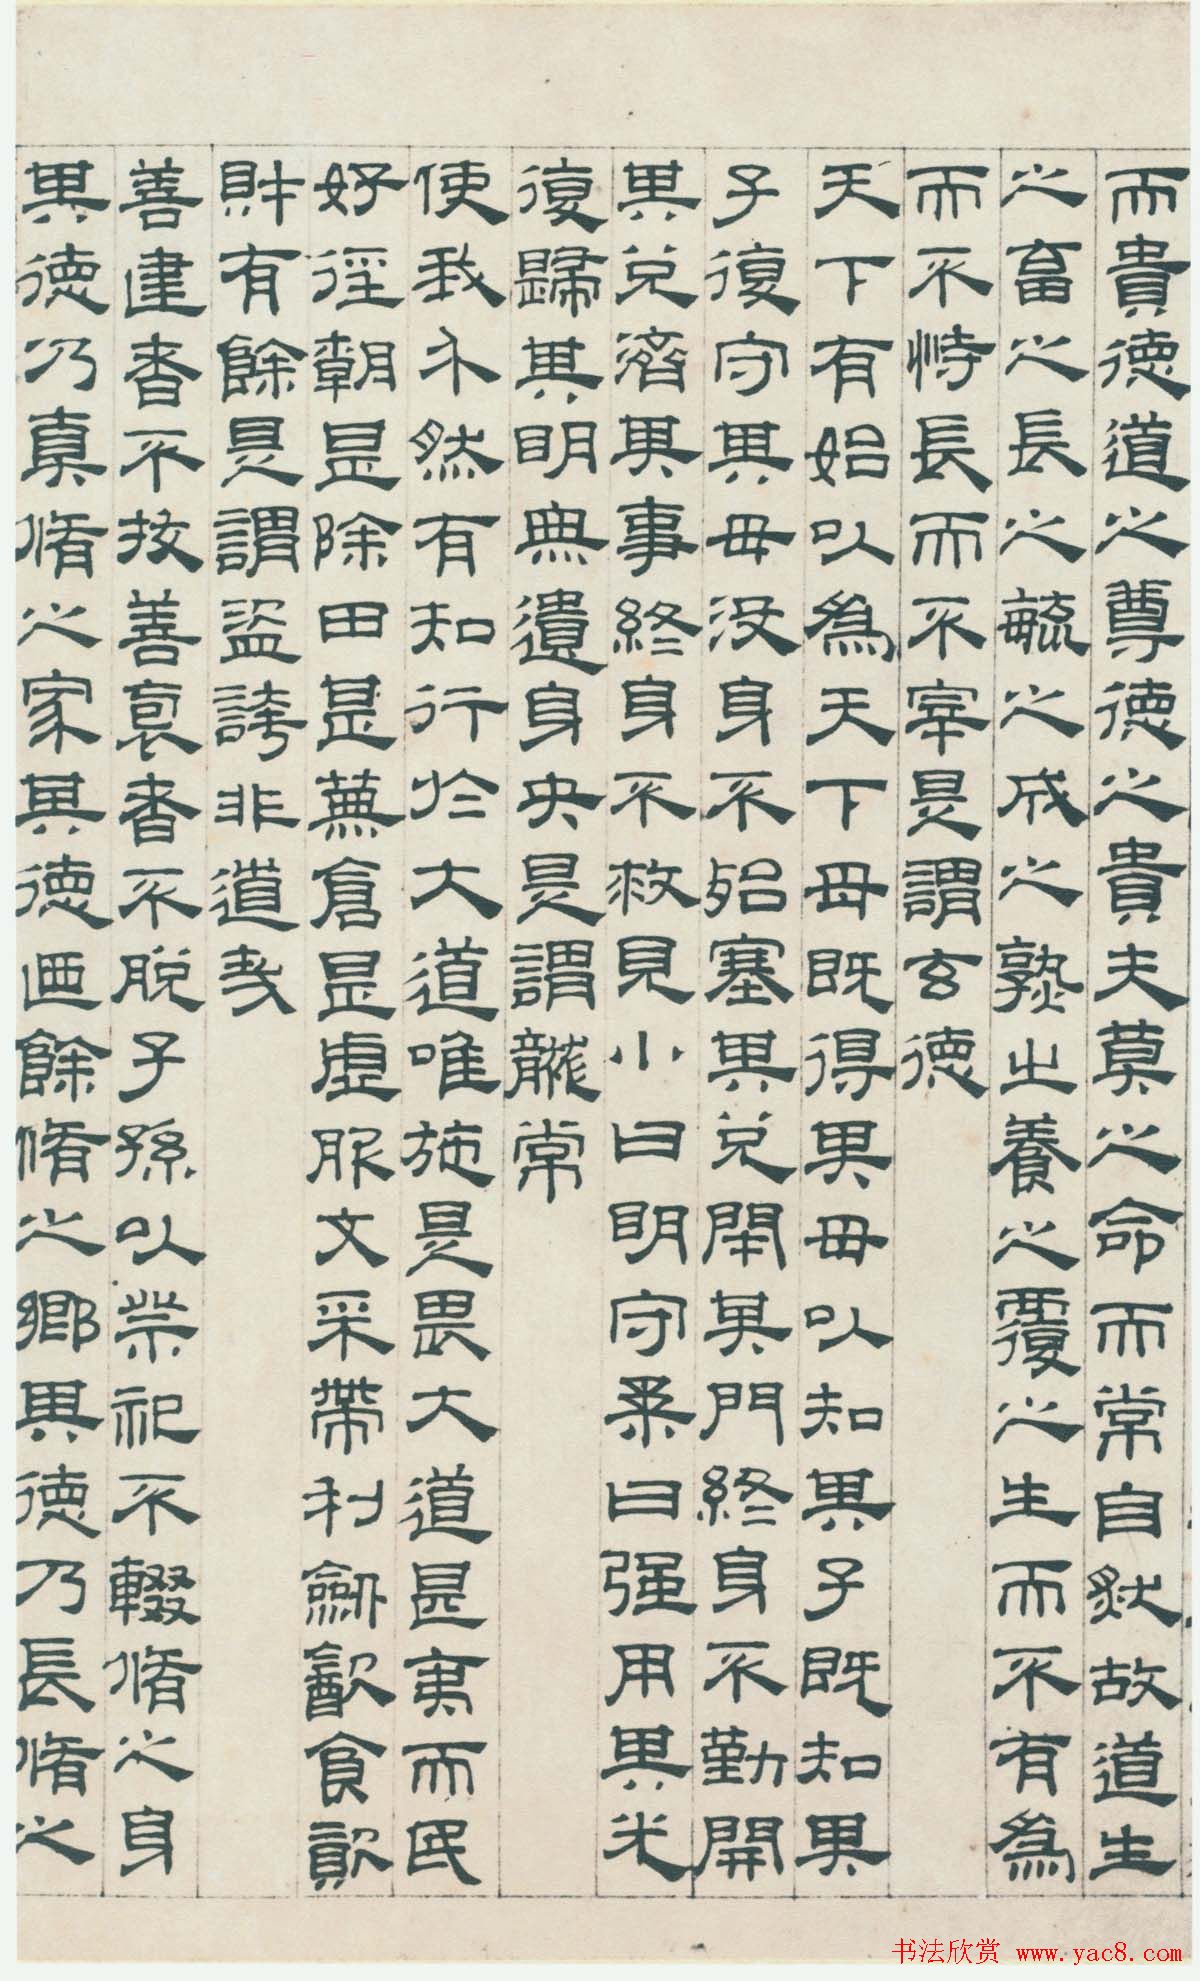 而貴德道之尊德之貴夫莫之命而常自然故道生
之畜之長之毓之成之熟之養之覆之生而不有為
而不恃長而不宰是謂玄德
天下有始以為天下母既得其母以知其子既知其
子復守其母沒身不殆塞其兌閉其門終身不勤開
其兌濟其事終身不救見小曰明守柔曰強用其光
復歸其明無遺身央是謂襲常
使我介然有知行於大道唯施是畏大道甚夷而民
好徑朝甚除田甚蕪倉甚虛服文采帶利劍飲食資
財有餘是謂盜誇非道哉
善建者不拔善裦者不脫子孫以祭祀不輟脩之身
其德乃真脩之家其德廼餘脩之鄉其德乃長脩之
书法欣赏 www.yac8.com